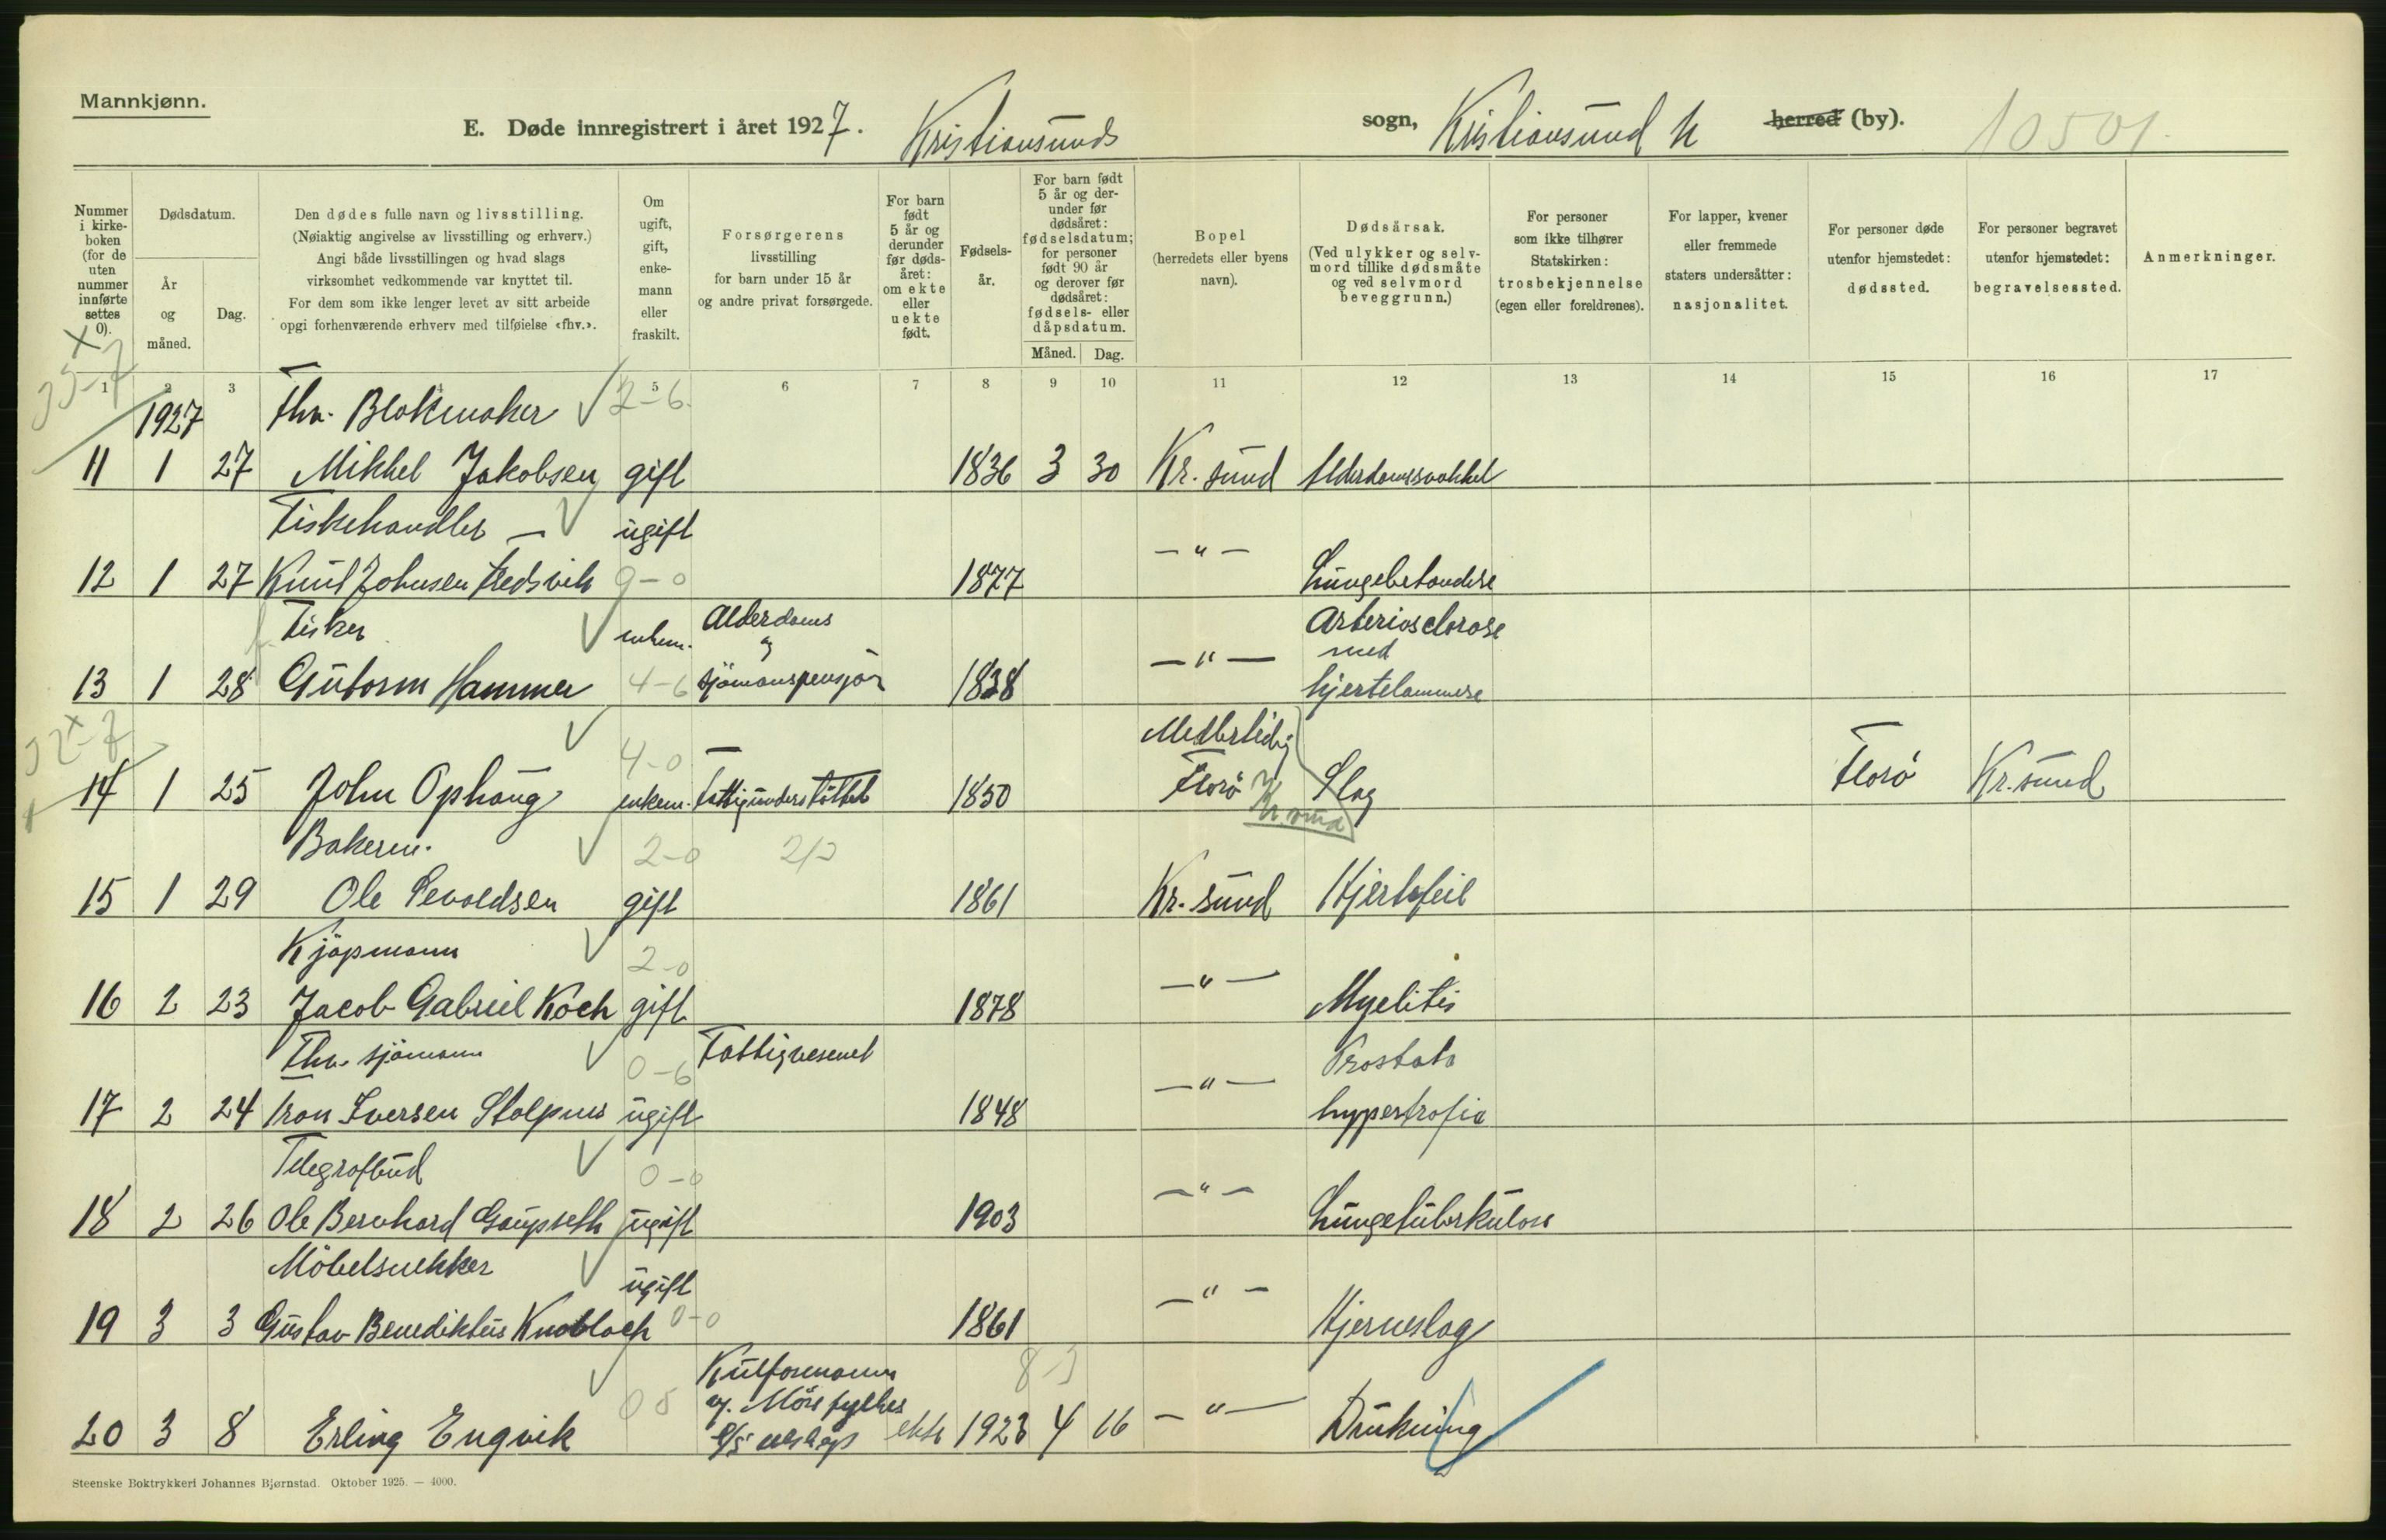 Mannkjønn.
E. Døde innregistrert i året 1927. Kristiansunds sogn, Kristiansund N herred (by). 10501.
Nummer i kirke-boken (for de uten nummer innførte settes 0).
Dødsdatum.
År og måned.
Dag.
Den dødes fulle navn og livsstilling.
(Nøiaktig angivelse av livsstilling og erhverv.)
Angi både livsstillingen og hvad slags
virksomhet vedkommende var knyttet til.
For dem som ikke lenger levet av sitt arbeide
opgi forhenværende erhverv med tilføielse «fhv.».
Om ugift, gift, enke-mann eller fraskilt.
Forsørgerens livsstilling
for barn under 15 år
og andre privat forsørgede.
For barn født 5 år og derunder før døds-året: om ekte eller uekte født.
Fødsels-år.
For barn født 5 år og der-under før dødsåret: fødselsdatum; for personer født 90 år og derover før dødsåret: fødsels- eller dåpsdatum.
Måned. Dag.
Bopel
(herredets eller byens navn).
Dødsårsak.
(Ved ulykker og selv-mord tillike dødsmåte og ved selvmord beveggrunn.)
For personer som ikke tilhører Statskirken: trosbekjennelse (egen eller foreldrenes).
For lapper, kvener eller fremmede staters undersåtter: nasjonalitet.
For personer døde utenfor hjemstedet: dødssted.
For personer begravet utenfor hjemstedet: begravelsessted.
Anmerkninger.
1 2 3 4 5 6 7 8 9 10 11 12 13 14 15 16 17
1927 Fhv. Blokmaker 2-6
11 1 27 Mikkel Jakobsen gift 1836 3 30 Kr.sund Alderdomssvakhet
Fiskehandler — ugift
12 1 27 Knut Johnsen Fredsvik 9-0 1877 —"— Lungebetendelse
Fisker enkem. Alderdoms og Arteriosclerose med
13 1 28 Guttorm Hammer 4-6 sjömanspensjon 1838 —"— hjertelammelse
4-0 Midlertidig
14 1 25 John Ophaug enkem. fattigunderstöttet 1850 Florö Kr.sund Slag Florö Kr.sund
Bakerm. 2-0
15 1 29 Ole Sevaldsen gift 1861 Kr.sund Hjertefeil
Kjöpmann 2-0
16 2 23 Jacob Gabriel Koch gift 1878 —"— Myelitis
Fhv. sjömann 0-6 Fattigvesenet Prostata
17 2 24 Iver Iversen Stolpnes ugift 1848 —"— hypertrofia
Telegrafbud 0-0
18 2 26 Ole Bernhard Gaupseth ugift 1903 —"— Lungetuberkulose
Möbelsnekker ugift
19 3 3 Gustav Benediktus Knobloch 0-0 1861 —"— Hjerneslag
Kulformann
av. Möre fylkes
20 3 8 Erling Engvik ekte 1923 4 16 —"— Drukning
Steenske Boktrykkeri Johannes Bjørnstad. Oktober 1925. — 4000.